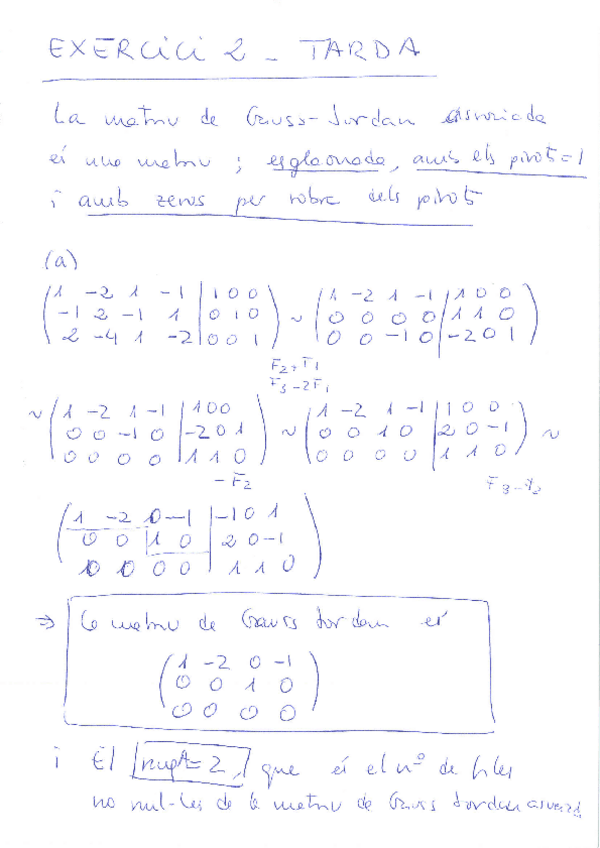 EXERCICI 2 - TARDA
La matriu de Gauss-Jordan associada
és una matriu ; esglaonada, amb els pivots=1
i amb zeros per sobre dels pivots
(a)
( 1 -2 1 -1 | 1 0 0 ) ~ ( 1 -2 1 -1 | 1 0 0 )
( -1 2 -1 1 | 0 1 0 ) ( 0 0 0 0 | 1 1 0 )
( 2 -4 1 -2 | 0 0 1 ) ( 0 0 -1 0 | -2 0 1 )
F2+F1
F3-2F1
~ ( 1 -2 1 -1 | 1 0 0 ) ~ ( 1 -2 1 -1 | 1 0 0 ) ~
( 0 0 -1 0 | -2 0 1 ) ( 0 0 1 0 | 2 0 -1 )
( 0 0 0 0 | 1 1 0 ) ( 0 0 0 0 | 1 1 0 )
-F2
( 1 -2 0 -1 | -1 0 1 )
( 0 0 1 0 | 2 0 -1 )
( 0 0 0 0 | 1 1 0 )
⇒ La matriu de Gauss Jordan és
( 1 -2 0 -1 )
( 0 0 1 0 )
( 0 0 0 0 )
i El rang A = 2, que és el nº de files
no nul·les de la matriu de Gauss Jordan